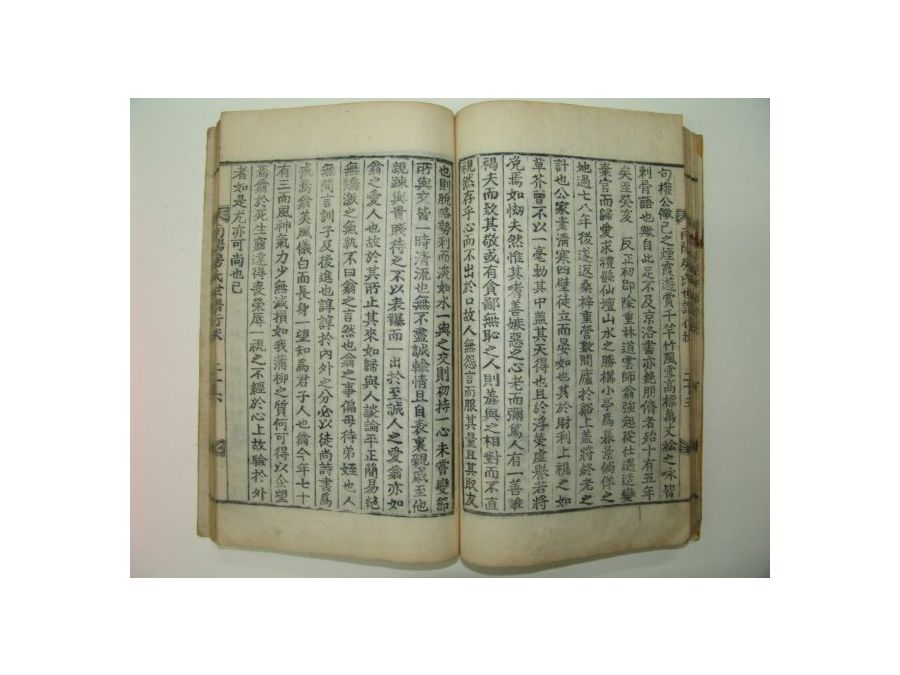 句權公儆己之煙霞遊賞千竿竹風雪高標萬丈松之咏皆
刺骨語也無自此足不及京洛書亦絶朋儕者殆十有五年
矣至癸亥 反正初即除重林道雲師翁強起從仕遇适變
棄官而歸愛求禮縣仙壇山水之勝構小亭爲暮景徜徉之
地過七八年後遂返桑梓重營數間廬於谿上蓋將終老之
計也公家素清寒四壁徒立而晏如也其於財利上視之如
草芥曾不以一毫動其中盖其天得也且於浮榮虛譽若將
浼焉如㤼夫然惟其嗜善嫉惡之心老而彌篤人有一善雖
褐夫而致其敬或有貪鄙無恥之人則羞與之相對而不直
視然存乎心而不出於口故人無怨言而服其量且其取友
也則脫略勢利而淡如水一與之交則初持一心未嘗變節
所與交皆一時清流也無不盡誠輸情且自表裏親戚至他
親踈與貴賤待之不以表襮而一出於至誠人之愛翁亦如
翁之愛人也故於其所止其來如歸與人談論平正簡易絶
無矯激之氣孰不曰翁之言然也翁之事偏母待弟姪也人
無間言訓子及後進也諄諄於內外之分必以徒尚詩書爲
戒焉翁美風儀白而長身一望知爲君子人也翁今年七十
有三而風神氣力少無減損如我蒲柳之質何可得以企望
焉翁於死生窮達得喪榮辱一視之不經於心上故驗於外
者如是尤亦可尚也已
南陽房氏世譜行狀 二十六